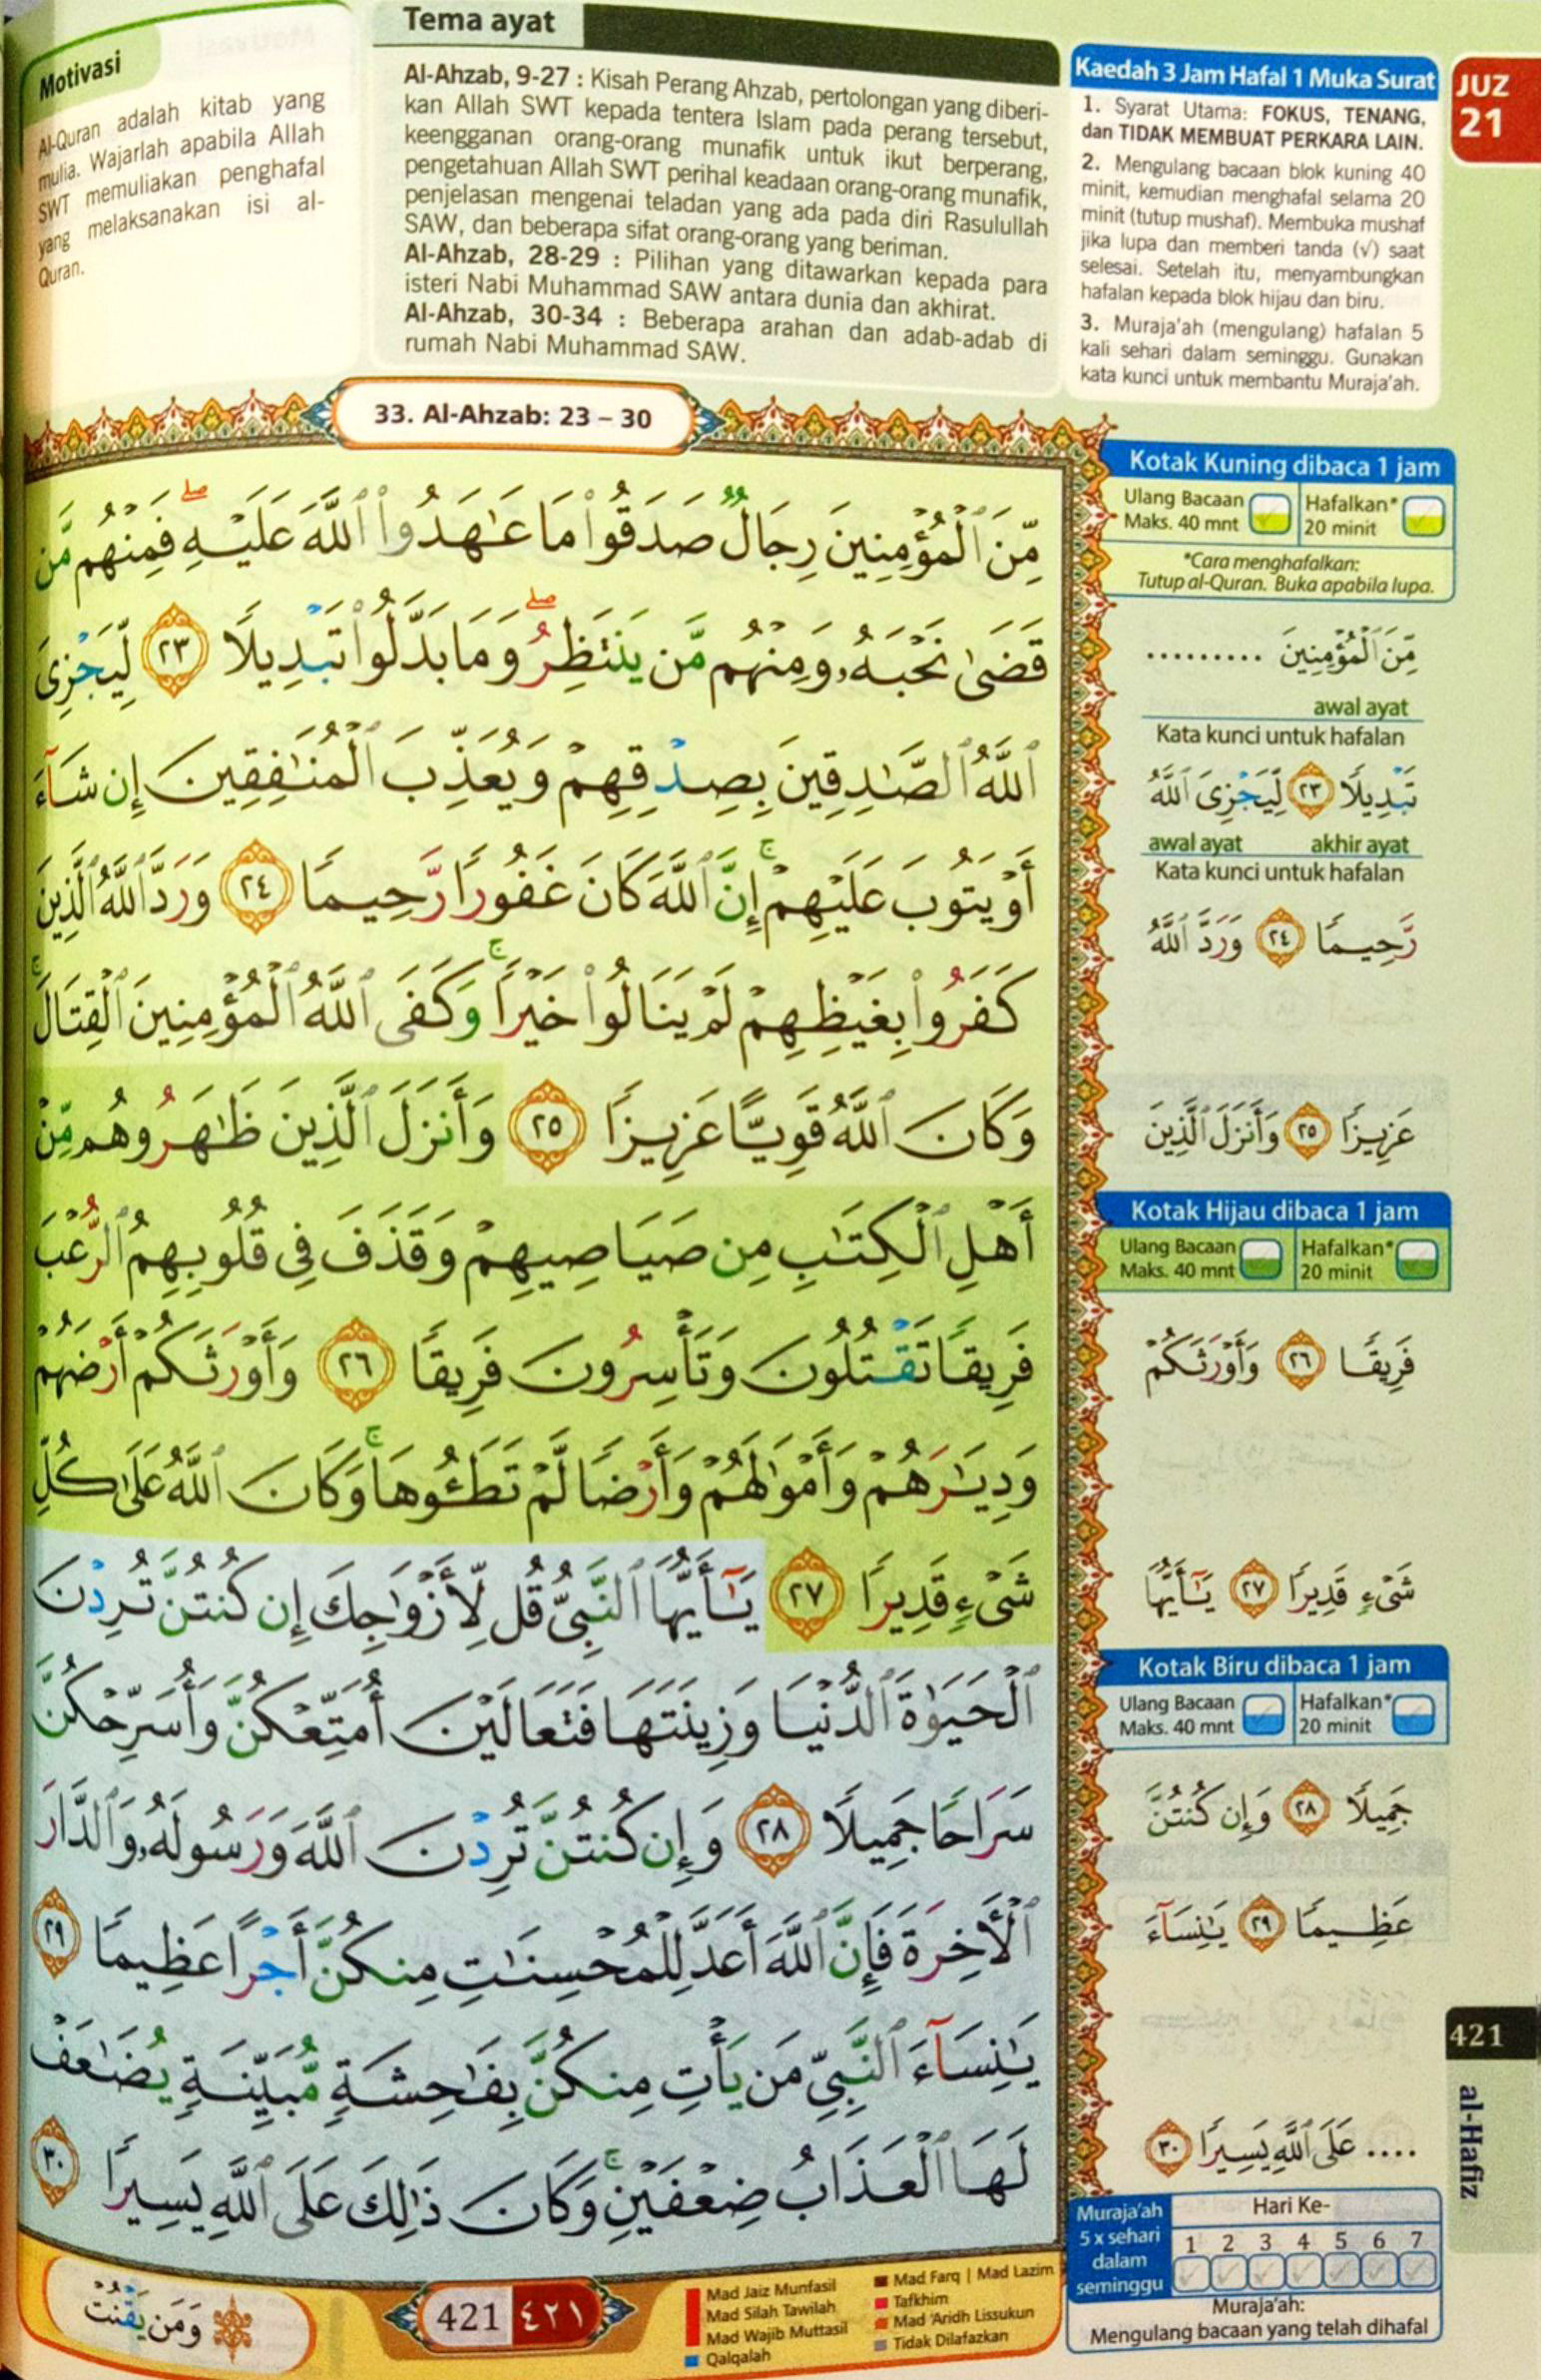 Motivasi
Al-Quran adalah kitab yang
mulia. Wajarlah apabila Allah
SWT memuliakan penghafal
yang melaksanakan isi al-
Quran.
Tema ayat
Al-Ahzab, 9-27 : Kisah Perang Ahzab, pertolongan yang diberi-
kan Allah SWT kepada tentera Islam pada perang tersebut,
keengganan orang-orang munafik untuk ikut berperang,
pengetahuan Allah SWT perihal keadaan orang-orang munafik,
penjelasan mengenai teladan yang ada pada diri Rasulullah
SAW, dan beberapa sifat orang-orang yang beriman.
Al-Ahzab, 28-29 : Pilihan yang ditawarkan kepada para
isteri Nabi Muhammad SAW antara dunia dan akhirat.
Al-Ahzab, 30-34 : Beberapa arahan dan adab-adab di
rumah Nabi Muhammad SAW.
Kaedah 3 Jam Hafal 1 Muka Surat
1. Syarat Utama: FOKUS, TENANG,
dan TIDAK MEMBUAT PERKARA LAIN.
2. Mengulang bacaan blok kuning 40
minit, kemudian menghafal selama 20
minit (tutup mushaf). Membuka mushaf
jika lupa dan memberi tanda (√) saat
selesai. Setelah itu, menyambungkan
hafalan kepada blok hijau dan biru.
3. Muraja'ah (mengulang) hafalan 5
kali sehari dalam seminggu. Gunakan
kata kunci untuk membantu Muraja'ah.
JUZ
21
33. Al-Ahzab: 23 – 30
مِّنَ ٱلْمُؤْمِنِينَ رِجَالٌ صَدَقُوا۟ مَا عَٰهَدُوا۟ ٱللَّهَ عَلَيْهِ ۖ فَمِنْهُم مَّن
قَضَىٰ نَحْبَهُۥ وَمِنْهُم مَّن يَنتَظِرُ ۖ وَمَا بَدَّلُوا۟ تَبْدِيلًا ٢٣ لِّيَجْزِىَ
ٱللَّهُ ٱلصَّٰدِقِينَ بِصِدْقِهِمْ وَيُعَذِّبَ ٱلْمُنَٰفِقِينَ إِن شَآءَ
أَوْ يَتُوبَ عَلَيْهِمْ ۚ إِنَّ ٱللَّهَ كَانَ غَفُورًا رَّحِيمًا ٢٤ وَرَدَّ ٱللَّهُ ٱلَّذِينَ
كَفَرُوا۟ بِغَيْظِهِمْ لَمْ يَنَالُوا۟ خَيْرًا ۚ وَكَفَى ٱللَّهُ ٱلْمُؤْمِنِينَ ٱلْقِتَالَ ۚ
وَكَانَ ٱللَّهُ قَوِيًّا عَزِيزًا ٢٥ وَأَنزَلَ ٱلَّذِينَ ظَٰهَرُوهُم مِّنْ
أَهْلِ ٱلْكِتَٰبِ مِن صَيَاصِيهِمْ وَقَذَفَ فِى قُلُوبِهِمُ ٱلرُّعْبَ
فَرِيقًا تَقْتُلُونَ وَتَأْسِرُونَ فَرِيقًا ٢٦ وَأَوْرَثَكُمْ أَرْضَهُمْ
وَدِيَٰرَهُمْ وَأَمْوَٰلَهُمْ وَأَرْضًا لَّمْ تَطَـُٔوهَا ۚ وَكَانَ ٱللَّهُ عَلَىٰ كُلِّ
شَىْءٍ قَدِيرًا ٢٧ يَٰٓأَيُّهَا ٱلنَّبِىُّ قُل لِّأَزْوَٰجِكَ إِن كُنتُنَّ تُرِدْنَ
ٱلْحَيَوٰةَ ٱلدُّنْيَا وَزِينَتَهَا فَتَعَالَيْنَ أُمَتِّعْكُنَّ وَأُسَرِّحْكُنَّ
سَرَاحًا جَمِيلًا ٢٨ وَإِن كُنتُنَّ تُرِدْنَ ٱللَّهَ وَرَسُولَهُۥ وَٱلدَّارَ
ٱلْءَاخِرَةَ فَإِنَّ ٱللَّهَ أَعَدَّ لِلْمُحْسِنَٰتِ مِنكُنَّ أَجْرًا عَظِيمًا ٢٩
يَٰنِسَآءَ ٱلنَّبِىِّ مَن يَأْتِ مِنكُنَّ بِفَٰحِشَةٍ مُّبَيِّنَةٍ يُضَٰعَفْ
لَهَا ٱلْعَذَابُ ضِعْفَيْنِ ۚ وَكَانَ ذَٰلِكَ عَلَى ٱللَّهِ يَسِيرًا ٣٠
Kotak Kuning dibaca 1 jam
Ulang Bacaan Maks. 40 mnt
Hafalkan* 20 minit
*Cara menghafalkan:
Tutup al-Quran. Buka apabila lupa.
مِّنَ ٱلْمُؤْمِنِينَ .........
awal ayat
Kata kunci untuk hafalan
تَبْدِيلًا ٢٣ لِّيَجْزِىَ ٱللَّهُ
awal ayat akhir ayat
Kata kunci untuk hafalan
رَّحِيمًا ٢٤ وَرَدَّ ٱللَّهُ
عَزِيزًا ٢٥ وَأَنزَلَ ٱلَّذِينَ
Kotak Hijau dibaca 1 jam
Ulang Bacaan Maks. 40 mnt
Hafalkan* 20 minit
فَرِيقًا ٢٦ وَأَوْرَثَكُمْ
شَىْءٍ قَدِيرًا ٢٧ يَٰٓأَيُّهَا
Kotak Biru dibaca 1 jam
Ulang Bacaan Maks. 40 mnt
Hafalkan* 20 minit
جَمِيلًا ٢٨ وَإِن كُنتُنَّ
عَظِيمًا ٢٩ يَٰنِسَآءَ
.... عَلَى ٱللَّهِ يَسِيرًا ٣٠
421
al-Hafiz
Muraja'ah
5 x sehari
dalam
seminggu
Hari Ke-
1 2 3 4 5 6 7
Muraja'ah:
Mengulang bacaan yang telah dihafal
وَمَن يَقْنُتْ
421 ٤٢١
Mad Jaiz Munfasil
Mad Silah Tawilah
Mad Wajib Muttasil
Qalqalah
Mad Farq | Mad Lazim
Tafkhim
Mad 'Aridh Lissukun
Tidak Dilafazkan